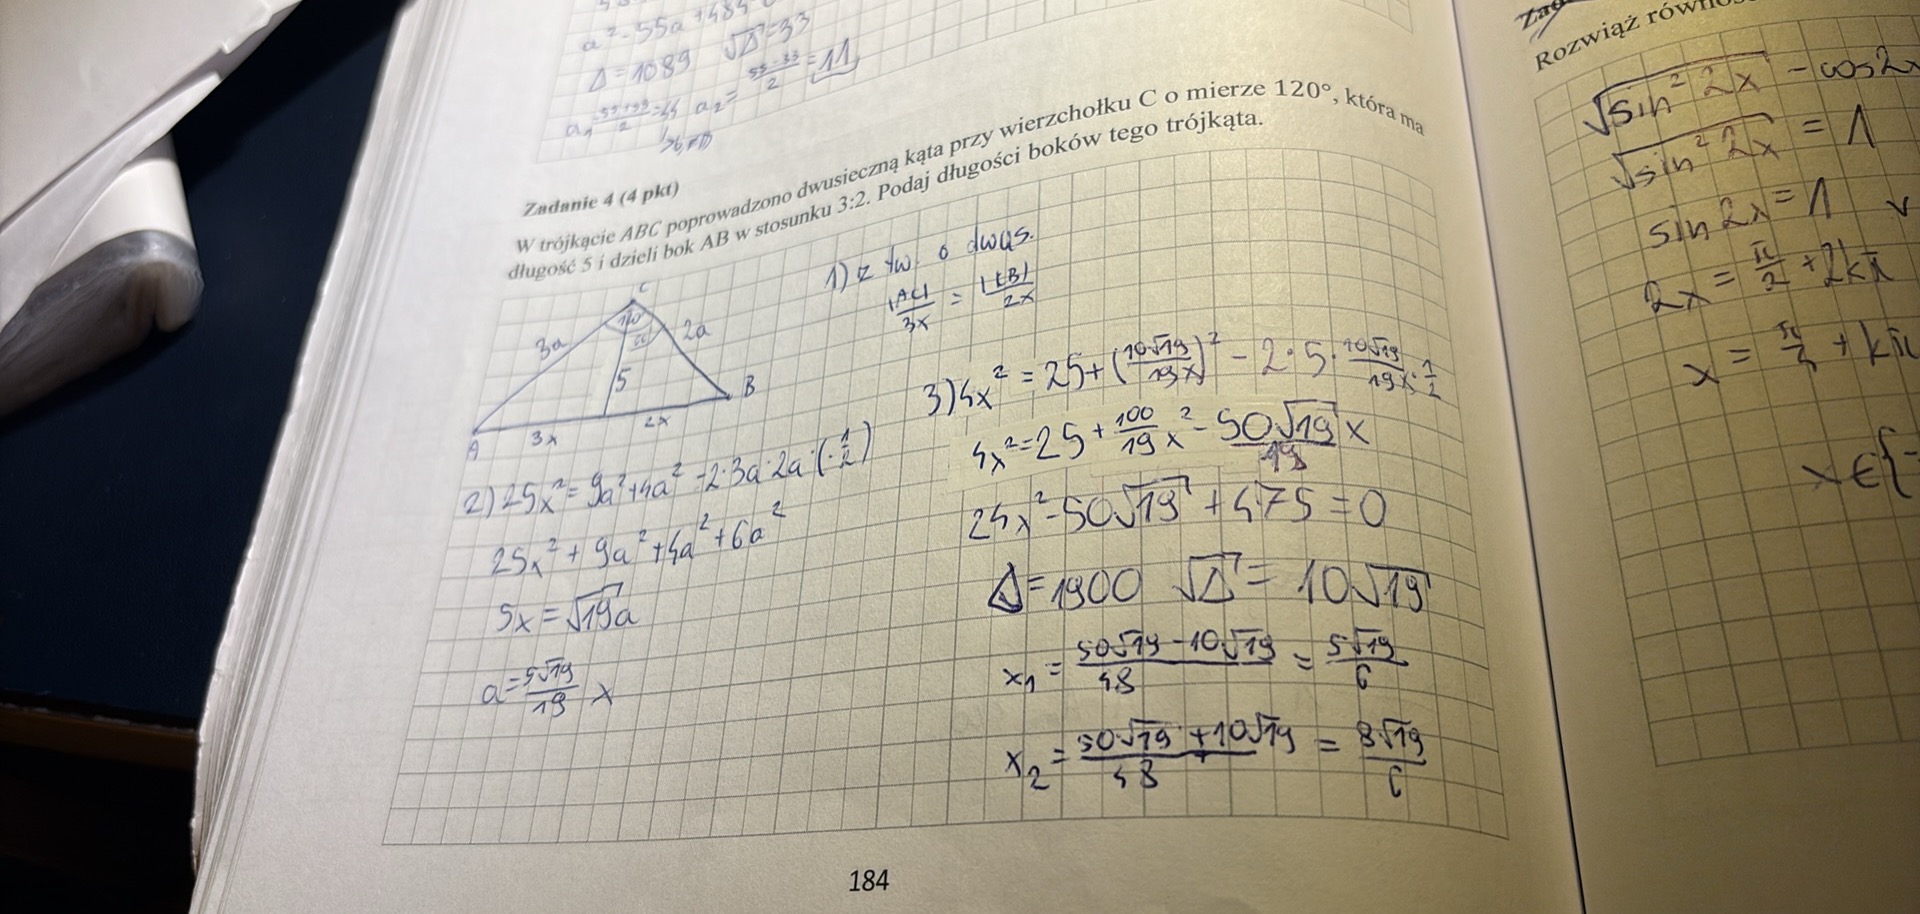 a² - 55a + 484
Δ = 1089 √Δ = 33
a₁ = (55+33)/2 = 44 a₂ = (55-33)/2 = 11
Zadanie 4 (4 pkt)
W trójkącie ABC poprowadzono dwusieczną kąta przy wierzchołku C o mierze 120°, która ma
długość 5 i dzieli bok AB w stosunku 3:2. Podaj długości boków tego trójkąta.
C
120
60
3a
2a
5
A
B
3x
2x
1) z tw. o dwus.
|AC|/3x = |CB|/2x
2) 25x² = 9a² + 4a² - 2·3a·2a·(-1/2)
25x² + 9a² + 4a² + 6a²
5x = √19a
a = 5√19/19 x
3) 4x² = 25 + (10√19/19 x)² - 2·5·10√19/19 x · 1/2
4x² = 25 + 100/19 x² - 50√19/19 x
24x² - 50√19 + 475 = 0
Δ = 1900 √Δ = 10√19
x₁ = (50√19 - 10√19)/48 = 5√19/6
x₂ = (50√19 + 10√19)/48 = 8√19/6
184
Rozwiąż
√sin² 2x - cos2x
√sin² 2x = 1
sin2x = 1 v
2x = π/2 + 2kπ
x = π/4 + kπ
x ∈ {-